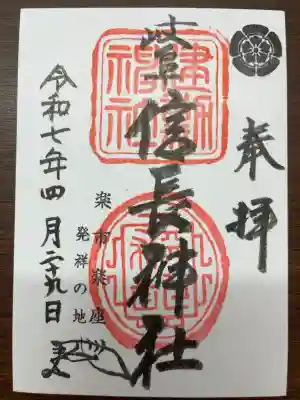 奉拝
岐阜信長神社
楽市楽座
発祥の地
令和七年四月二十九日